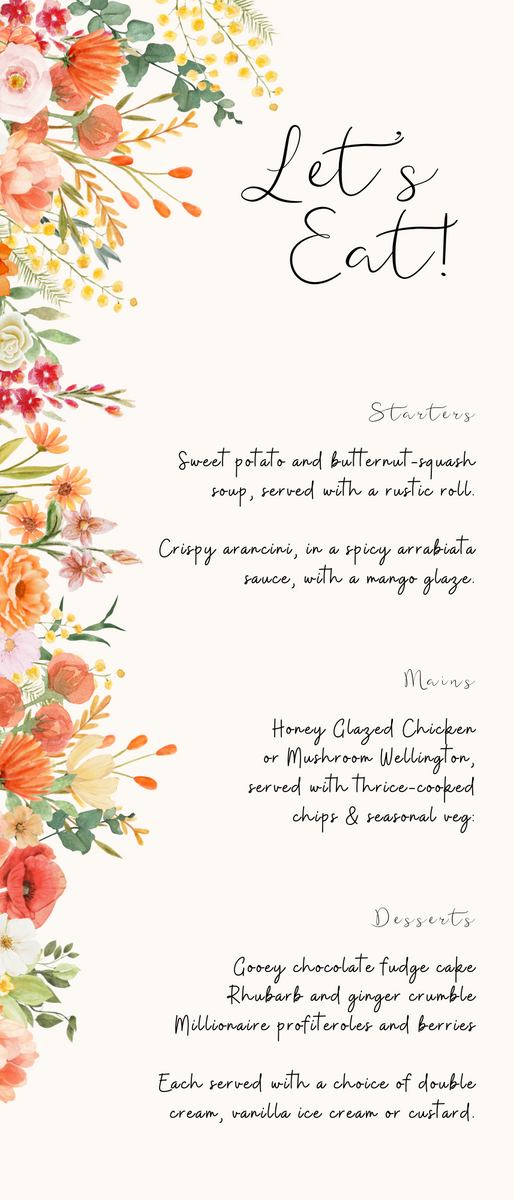 Let's
Eat!
Starters
Sweet potato and butternut-squash
soup, served with a rustic roll.
Crispy arancini, in a spicy arrabiata
sauce, with a mango glaze.
Mains
Honey Glazed Chicken
or Mushroom Wellington,
served with thrice-cooked
chips & seasonal veg:
Desserts
Gooey chocolate fudge cake
Rhubarb and ginger crumble
Millionaire profiteroles and berries
Each served with a choice of double
cream, vanilla ice cream or custard.